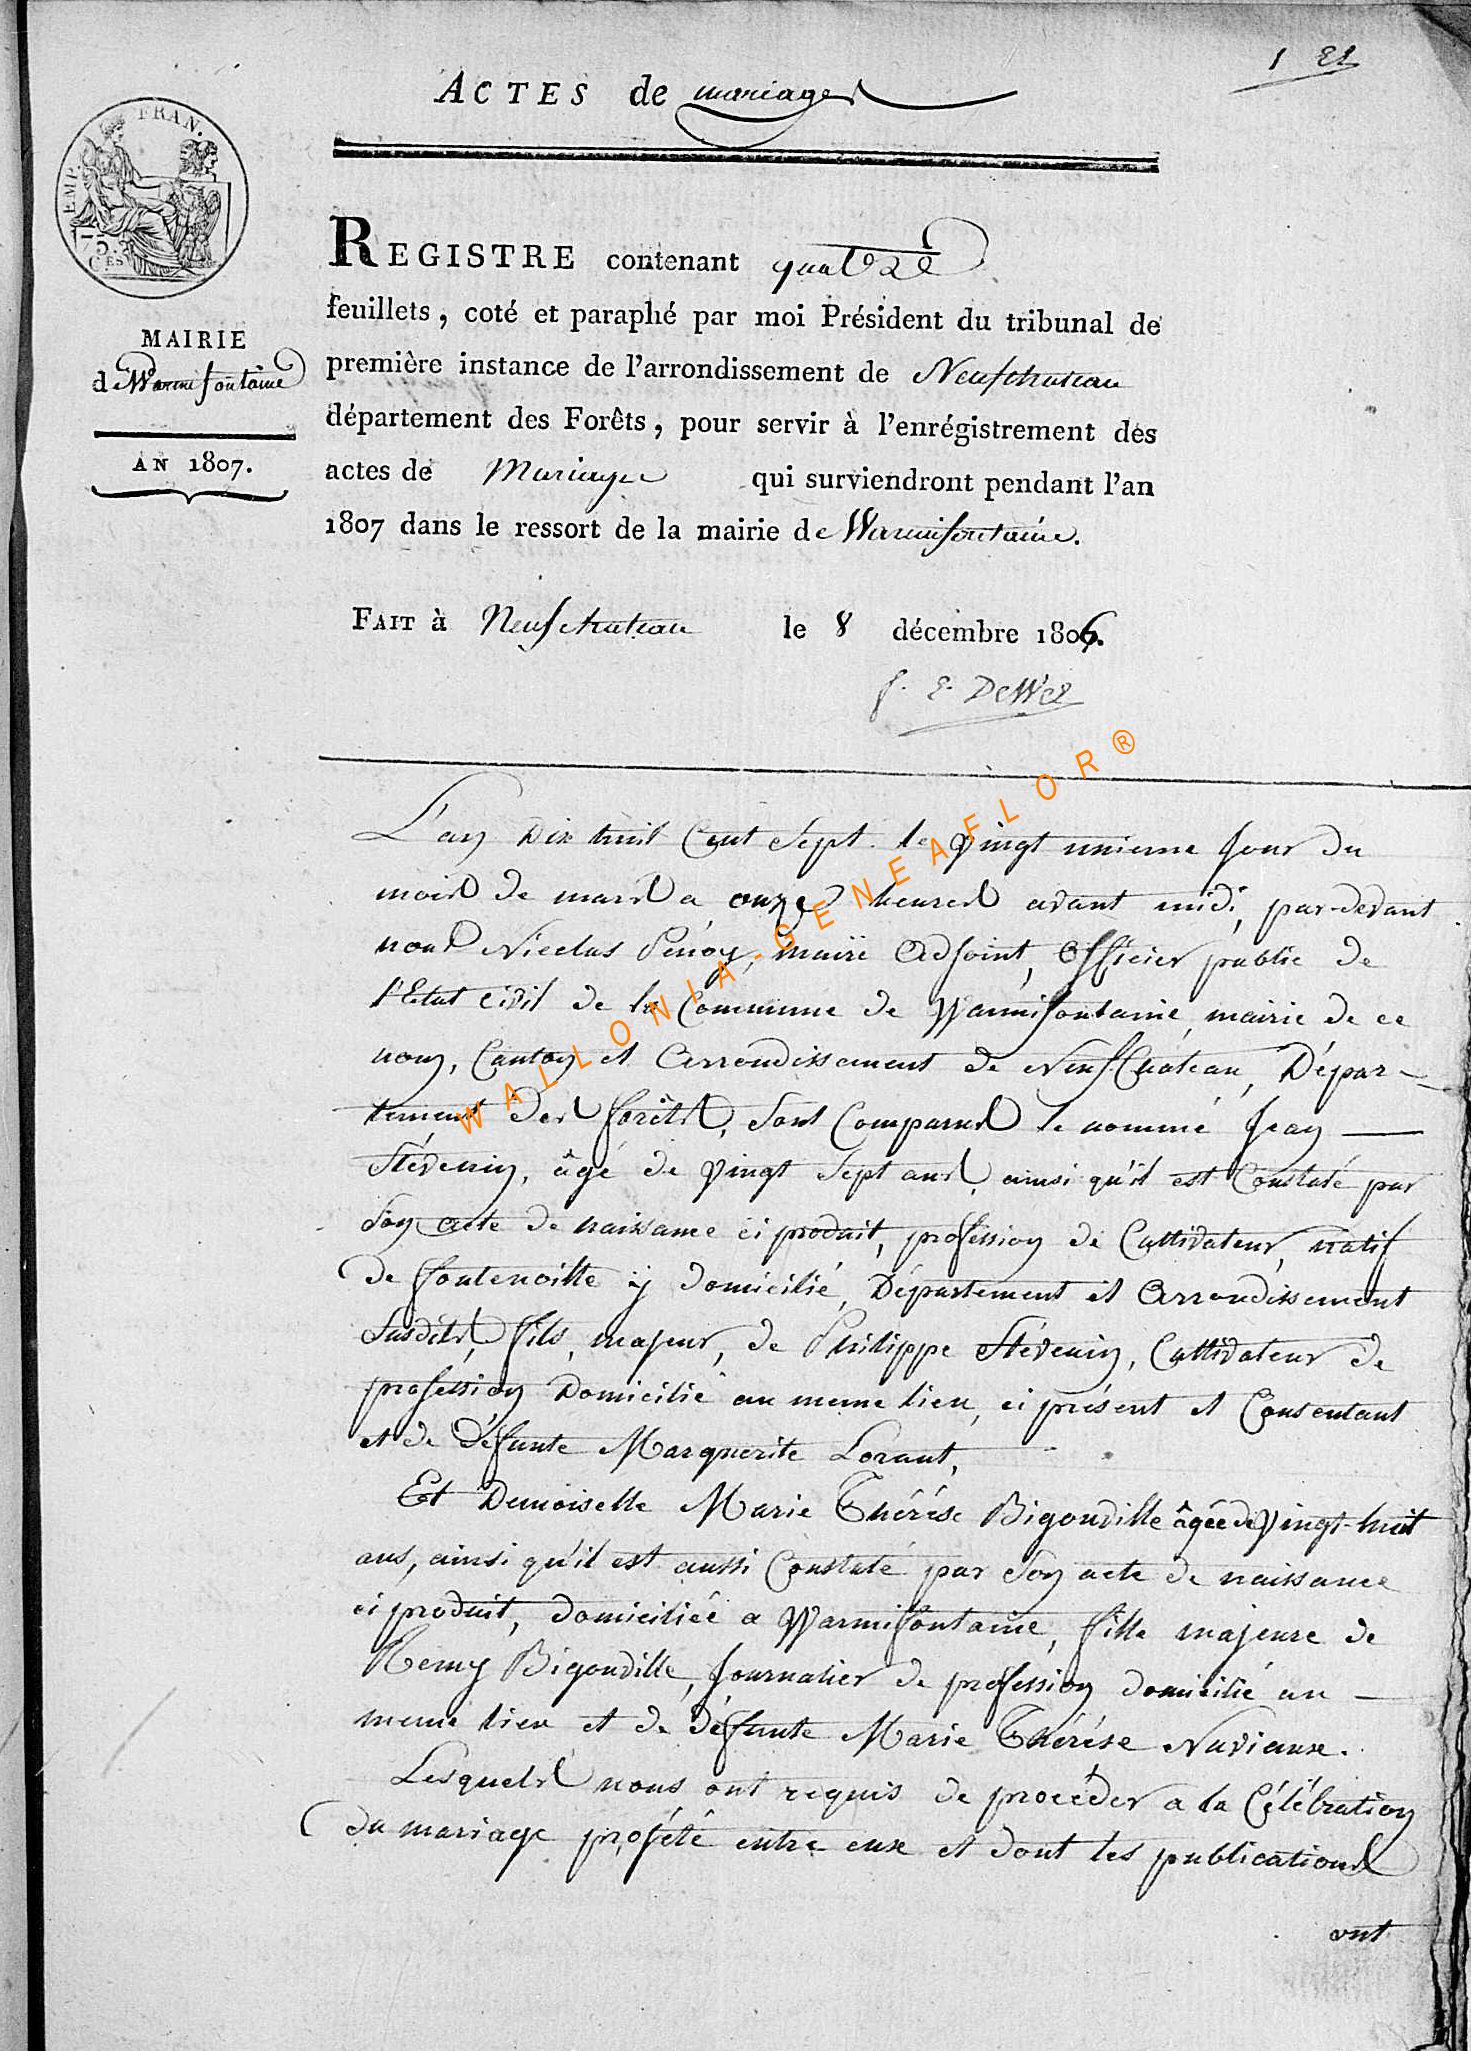 1 El
ACTES de mariages
EMP. FRAN.
75
CES
REGISTRE contenant quatre
feuillets, coté et paraphé par moi Président du tribunal de
MAIRIE
première instance de l'arrondissement de Neufchateau
de Warmifontaine
département des Forêts, pour servir à l'enrégistrement des
AN 1807.
actes de Mariage qui surviendront pendant l'an
1807 dans le ressort de la mairie de Warmifontaine.
FAIT à Neufchateau le 8 décembre 1806.
f. E. DeWez
L'an Dix huit Cent Sept. le Vingt unieme Jour du
mois de mars a onze heures avant midi, par-devant
nous Nicolas Penoy, maire Adjoint, Officier public de
l'Etat Civil de la Commune de Warmifontaine, mairie de ce
nom, Canton et Arrondissement de NeufChâteau, Dépar-
tement des forêts, Sont Comparus le nommé Jean
Stévenin, âgé de Vingt Sept ans, ainsi qu'il est Constaté par
Son acte de naissance ci produit, profession de Cultivateur, natif
de fontenoille ÿ domicilié, Département et Arrondissement
Susdits, fils, majeur, de Philippe Stévenin, Cultivateur de
profession Domicilié au meme lieu, ci présent et Consentant
et de défunte Marguerite Lorant,
Et Demoiselle Marie Thérése Bigonville âgée de Vingt-huit
ans, ainsi qu'il est aussi Constaté par Son acte de naissance
ci produit, domiciliée a Warmifontaine, fille majeure de
Remy Bigonville, Journalier de profession domicilié au
meme lieu et de défunte Marie Thérése Naviaux.
Lesquels nous ont requis de procéder a la Célébration
du mariage projété entre eux et dont les publications
ont
WALLONIA-GENEAFLOR®